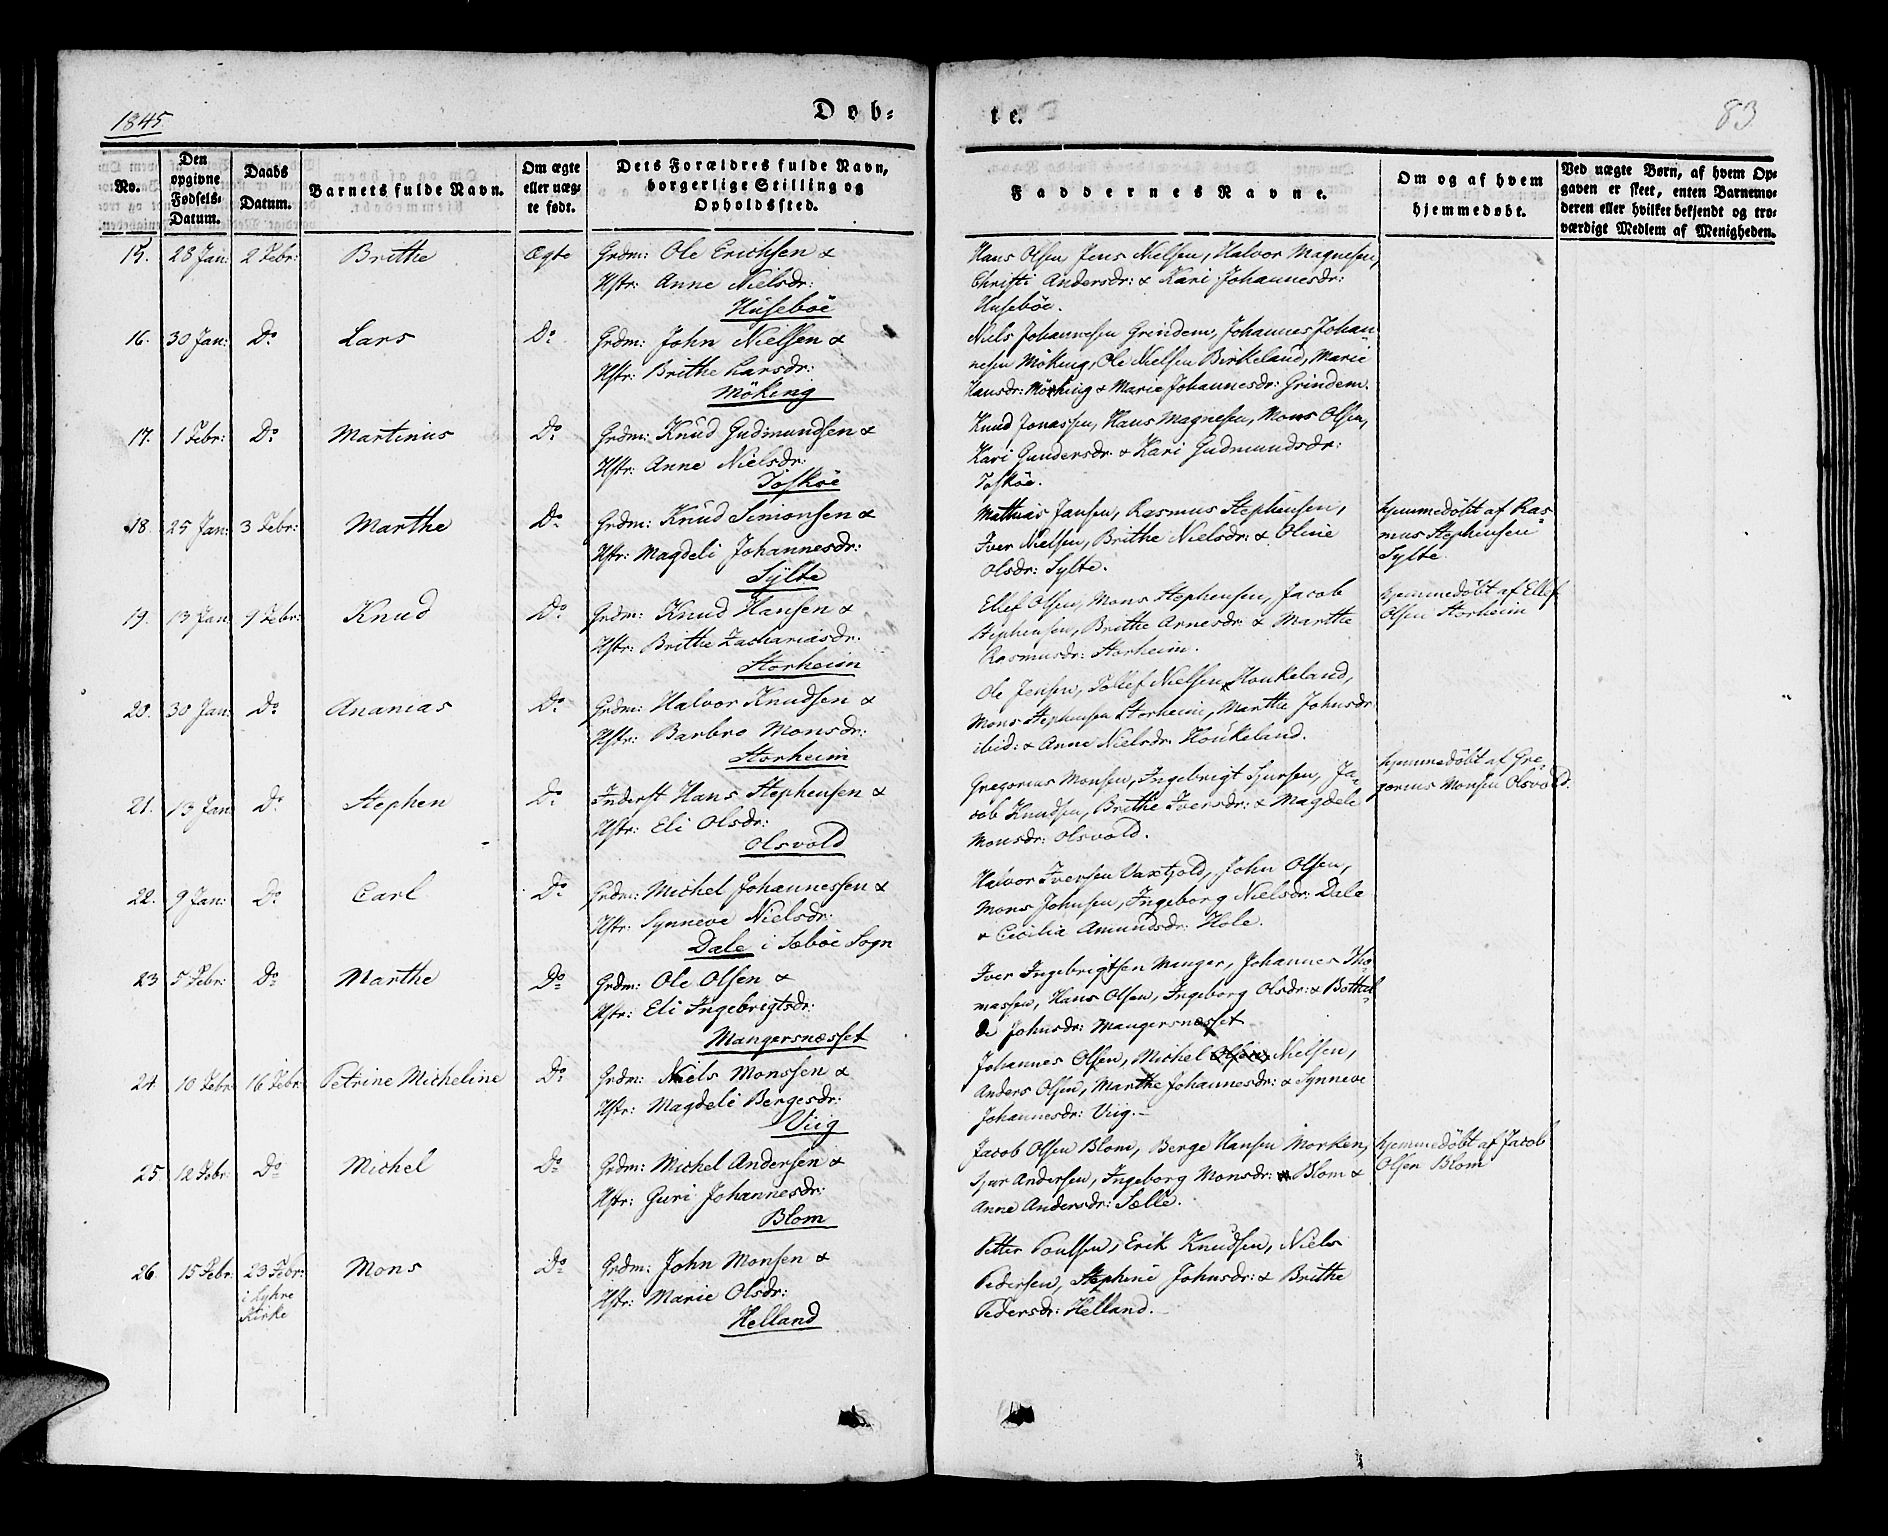 1845.
Døb-
te.
83
No.
Den opgivne Fødsels-Datum.
Daabs Datum.
Barnets fulde Navn.
Om ægte eller uægte født.
Dets Forældres fulde Navn, borgerlige Stilling og Opholdssted.
Faddernes Navne.
Om og af hvem hjemmedøbt.
Ved uægte Børn, af hvem Opgaven er skeet, enten Barnemoderen eller hvilket bekjendt og troværdigt Medlem af Menigheden.
15. 28 Jan: 2 Febr: Brithe Ægte Grdm: Ole Erichsen &
Hstr: Anne Nielsdr:
Husebøe
Hans Olsen, Jens Nielsen, Halvor Magnesen,
Christi Andersdr: & Kari Johannesdr:
Husebøe.
16. 30 Jan: Do Lars Do Grdm: John Nielsen &
Hstr: Brithe Larsdr:
Möking
Niels Johannesen Grindem, Johannes Johan-
nesen Möking, Ole Nielsen Birkeland, Marie
Hansdr: Möking & Marie Johannesdr: Grindem.
17. 1 Febr: Do Martinus Do Grdm: Knud Gudmundsen &
Hstr: Anne Nielsdr:
Toskøe
Knud Jonassen, Hans Magnesen, Mons Olsen,
Kari Gundersdr: & Kari Gudmundsdr:
Toskøe.
18. 25 Jan: 3 Febr: Marthe Do Grdm: Knud Simonsen &
Hstr: Magdeli Johannesdr:
Sylte
Mathias Jansen, Rasmus Stephensen,
Iver Nielsen, Brithe Nielsdr: & Oline
Olsdr: Sylte.
hjemmedöbt af Ras-
mus Stephensen
Sylte
19. 13 Jan 9 Febr: Knud Do Grdm: Knud Hansen &
Hstr: Brithe Zachariasdr:
Storheim
Ellef Olsen, Mons Stephensen, Jacob
Stephensen, Brithe Arnesdr: & Marthe
Rasmusdr: Storheim.
hjemmedöbt af Ellef
Olsen Storheim
20. 30 Jan: Do Ananias Do Grdm: Halvor Knudsen &
Hstr: Barbro Monsdr:
Storheim
Ole Jensen, Tollef Nielsen Houkeland,
Mons Stephensen Storheim, Marthe Johnsdr:
ibid: & Anne Nielsdr: Houkeland.
21. 13 Jan Do Stephen Do Inderst Hans Stephensen &
Hstr: Eli Olsdr:
Olsvold
Gregorius Monsen, Ingebrigt Sjursen, Ja-
cob Knudsen, Brithe Iversdr: & Magdele
Monsdr: Olsvold.
hjemmedöbt af Gre-
gorius Monsen Olsvold.
22. 9 Jan: Do Carl Do Grdm: Michel Johannessen &
Hstr: Synneve Nielsdr:
Dale i Sæbøe Sogn
Halvor Iversen, John Olsen,
Mons Johnsen, Ingeborg Nielsdr: Dale
& Cecilia Amundsdr: Hole.
23 5 Febr: Do Marthe Do Grdm: Ole Olsen &
Hstr: Eli Ingebrigtsdr:
Mangersnæsset
Iver Ingebrigtsen Manger, Johannes Tho-
massen, Hans Olsen, Ingeborg Olsdr: & Bothil-
de Johnsdr: Mangersnæsset
24 10 Febr 16 Febr Petrine Micheline Do Grdm: Niels Monssen &
Hstr: Magdeli Bergesdr:
Viig
Johannes Olsen, Michel Olsen, Nielsen,
Anders Olsen, Marthe Johannesdr: & Synneve
Johannesdr: Viig.—
25 12 Febr: Do Michel Do Grdm: Michel Andersen &
Hstr: Guri Johannesdr:
Blom
Jacob Olsen Blom, Berge Hansen Morken,
Sjur Andersen, Ingeborg Monsdr: Blom &
Anne Andersdr: Sælle.
hjemmedöbt af Jacob
Olsen Blom
26. 15 Febr: 23 Febr: Mons Do Grdm: John Monsen &
i Lyhre
Kirke
Hstr: Marie Olsdr:
Helland
Petter Poulsen, Erik Knudsen, Niels
Pedersen, Stephene Johnsdr: & Brithe
Pedersdr: Helland.—